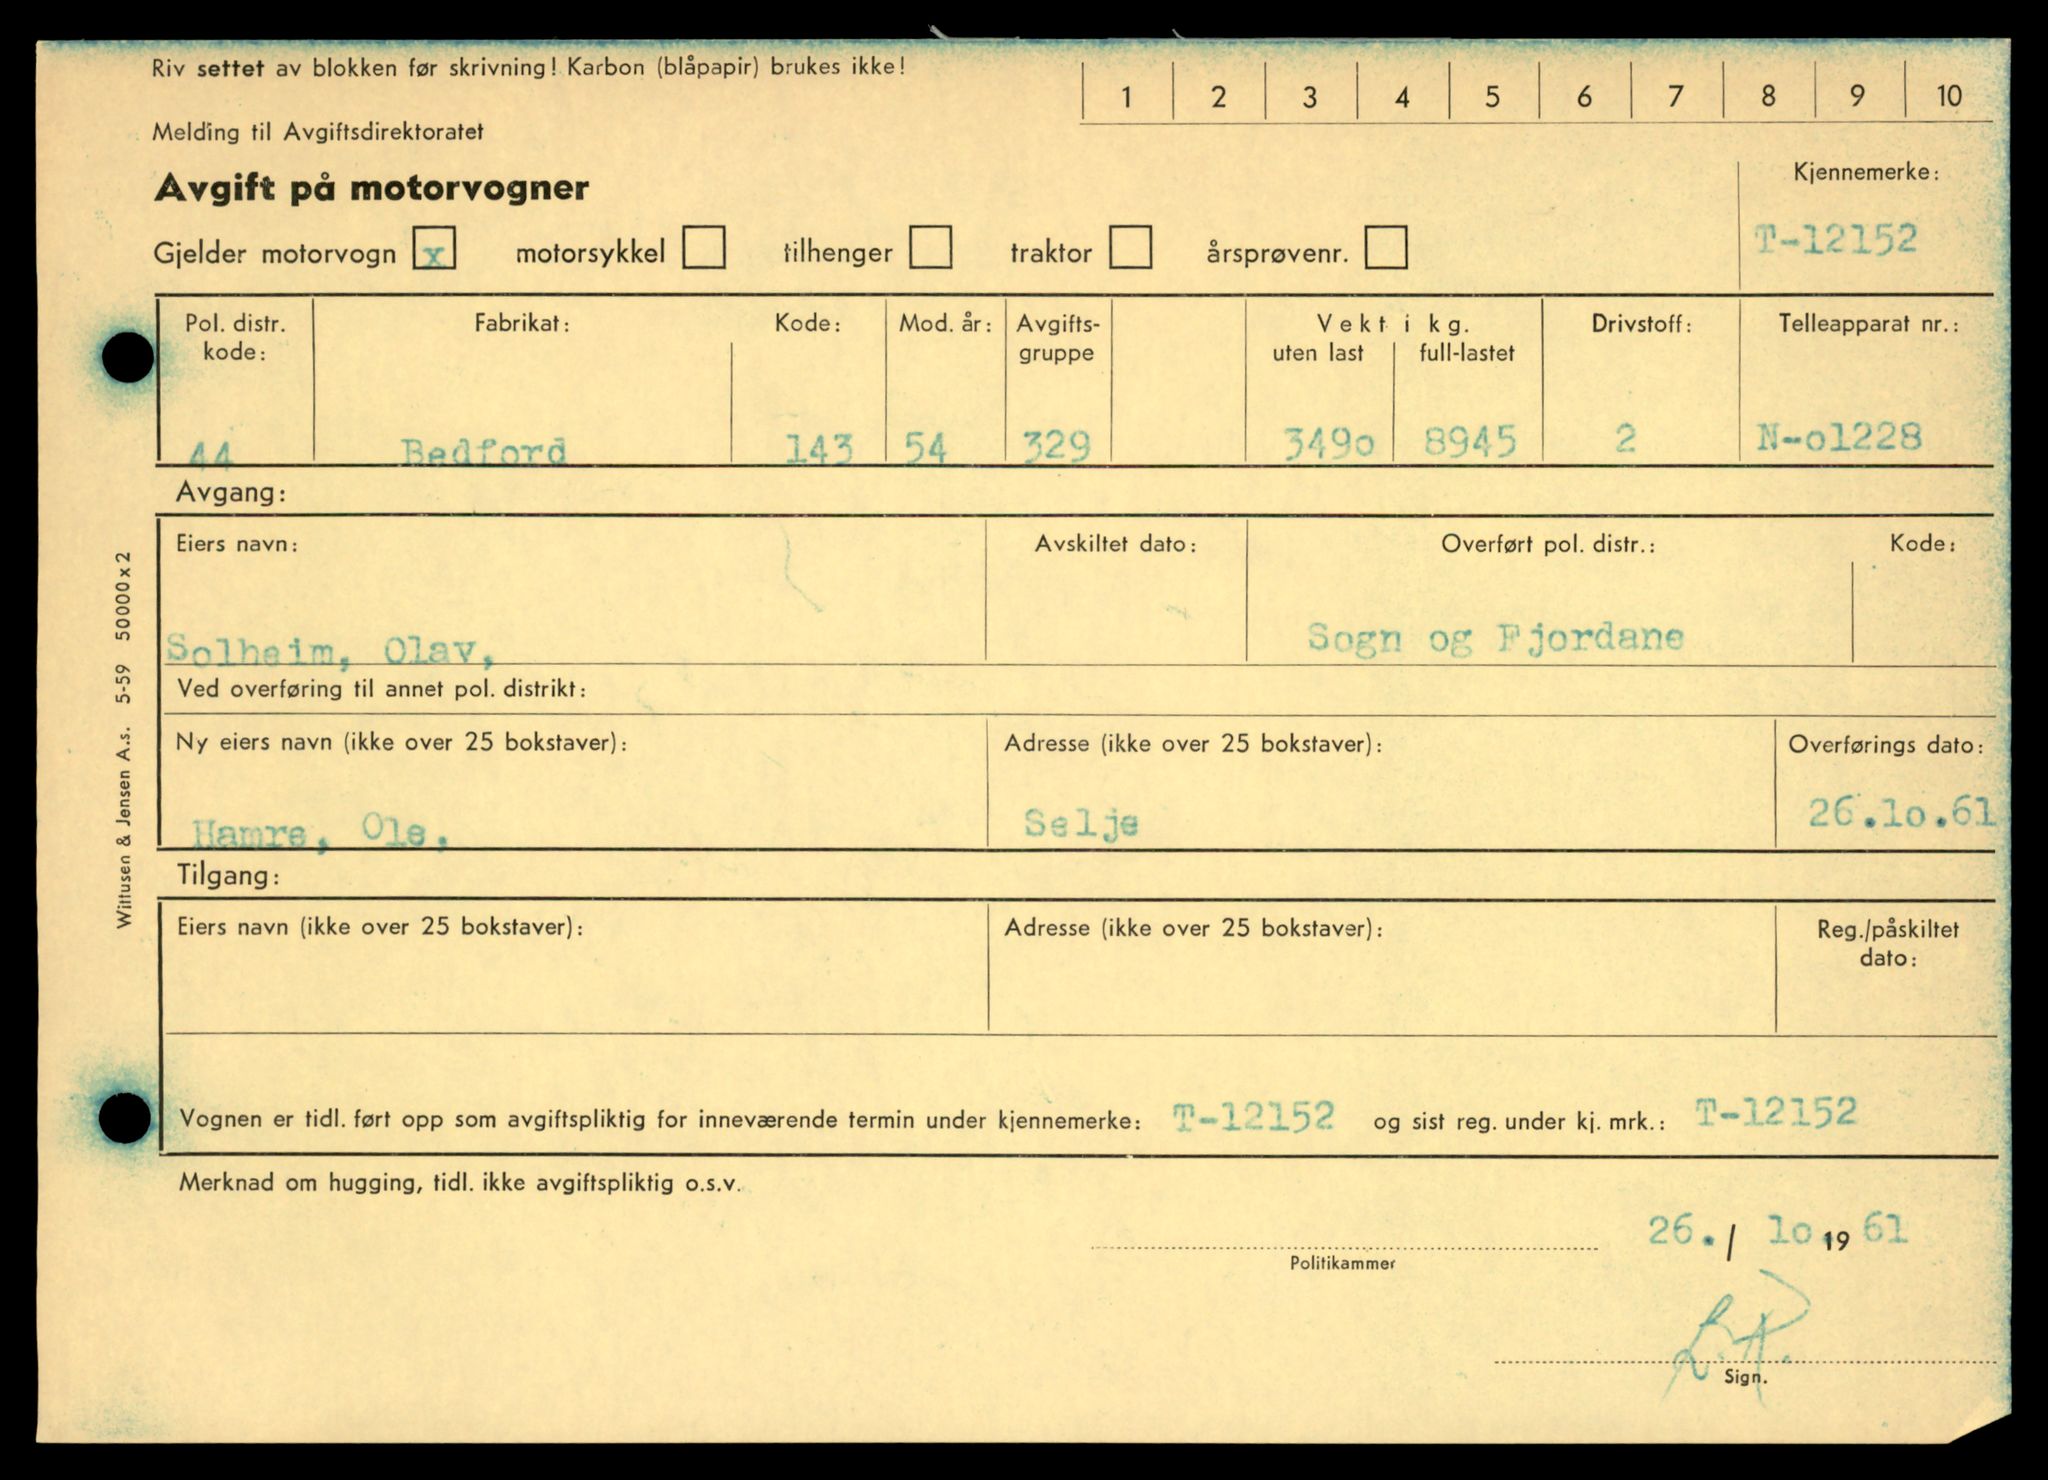 Riv settet av blokken før skrivning! Karbon (blåpapir) brukes ikke!
1 2 3 4 5 6 7 8 9 10
Melding til Avgiftsdirektoratet
Avgift på motorvogner
Kjennemerke:
T-12152
Gjelder motorvogn x motorsykkel tilhenger traktor årsprøvenr.
Pol. distr. kode: Fabrikat: Kode: Mod. år: Avgifts-gruppe Vekt i kg. uten last full-lastet Drivstoff: Telleapparat nr.:
44 Bedford 143 54 329 349o 8945 2 N-o1228
Avgang:
Eiers navn: Avskiltet dato: Overført pol. distr.: Kode:
Solheim, Olav, Sogn og Fjordane
Ved overføring til annet pol. distrikt:
Ny eiers navn (ikke over 25 bokstaver): Adresse (ikke over 25 bokstaver): Overførings dato:
Hamre, Ole. Selje 26.1o.61
Tilgang:
Eiers navn (ikke over 25 bokstaver): Adresse (ikke over 25 bokstaver): Reg./påskiltet dato:
Vognen er tidl. ført opp som avgiftspliktig for inneværende termin under kjennemerke: T-12152 og sist reg. under kj. mrk.: T-12152
Merknad om hugging, tidl. ikke avgiftspliktig o.s.v.
26. / 1o. 19 61
Politikammer
Sign.
Wittusen & Jensen A.s. 5-59 50000x2